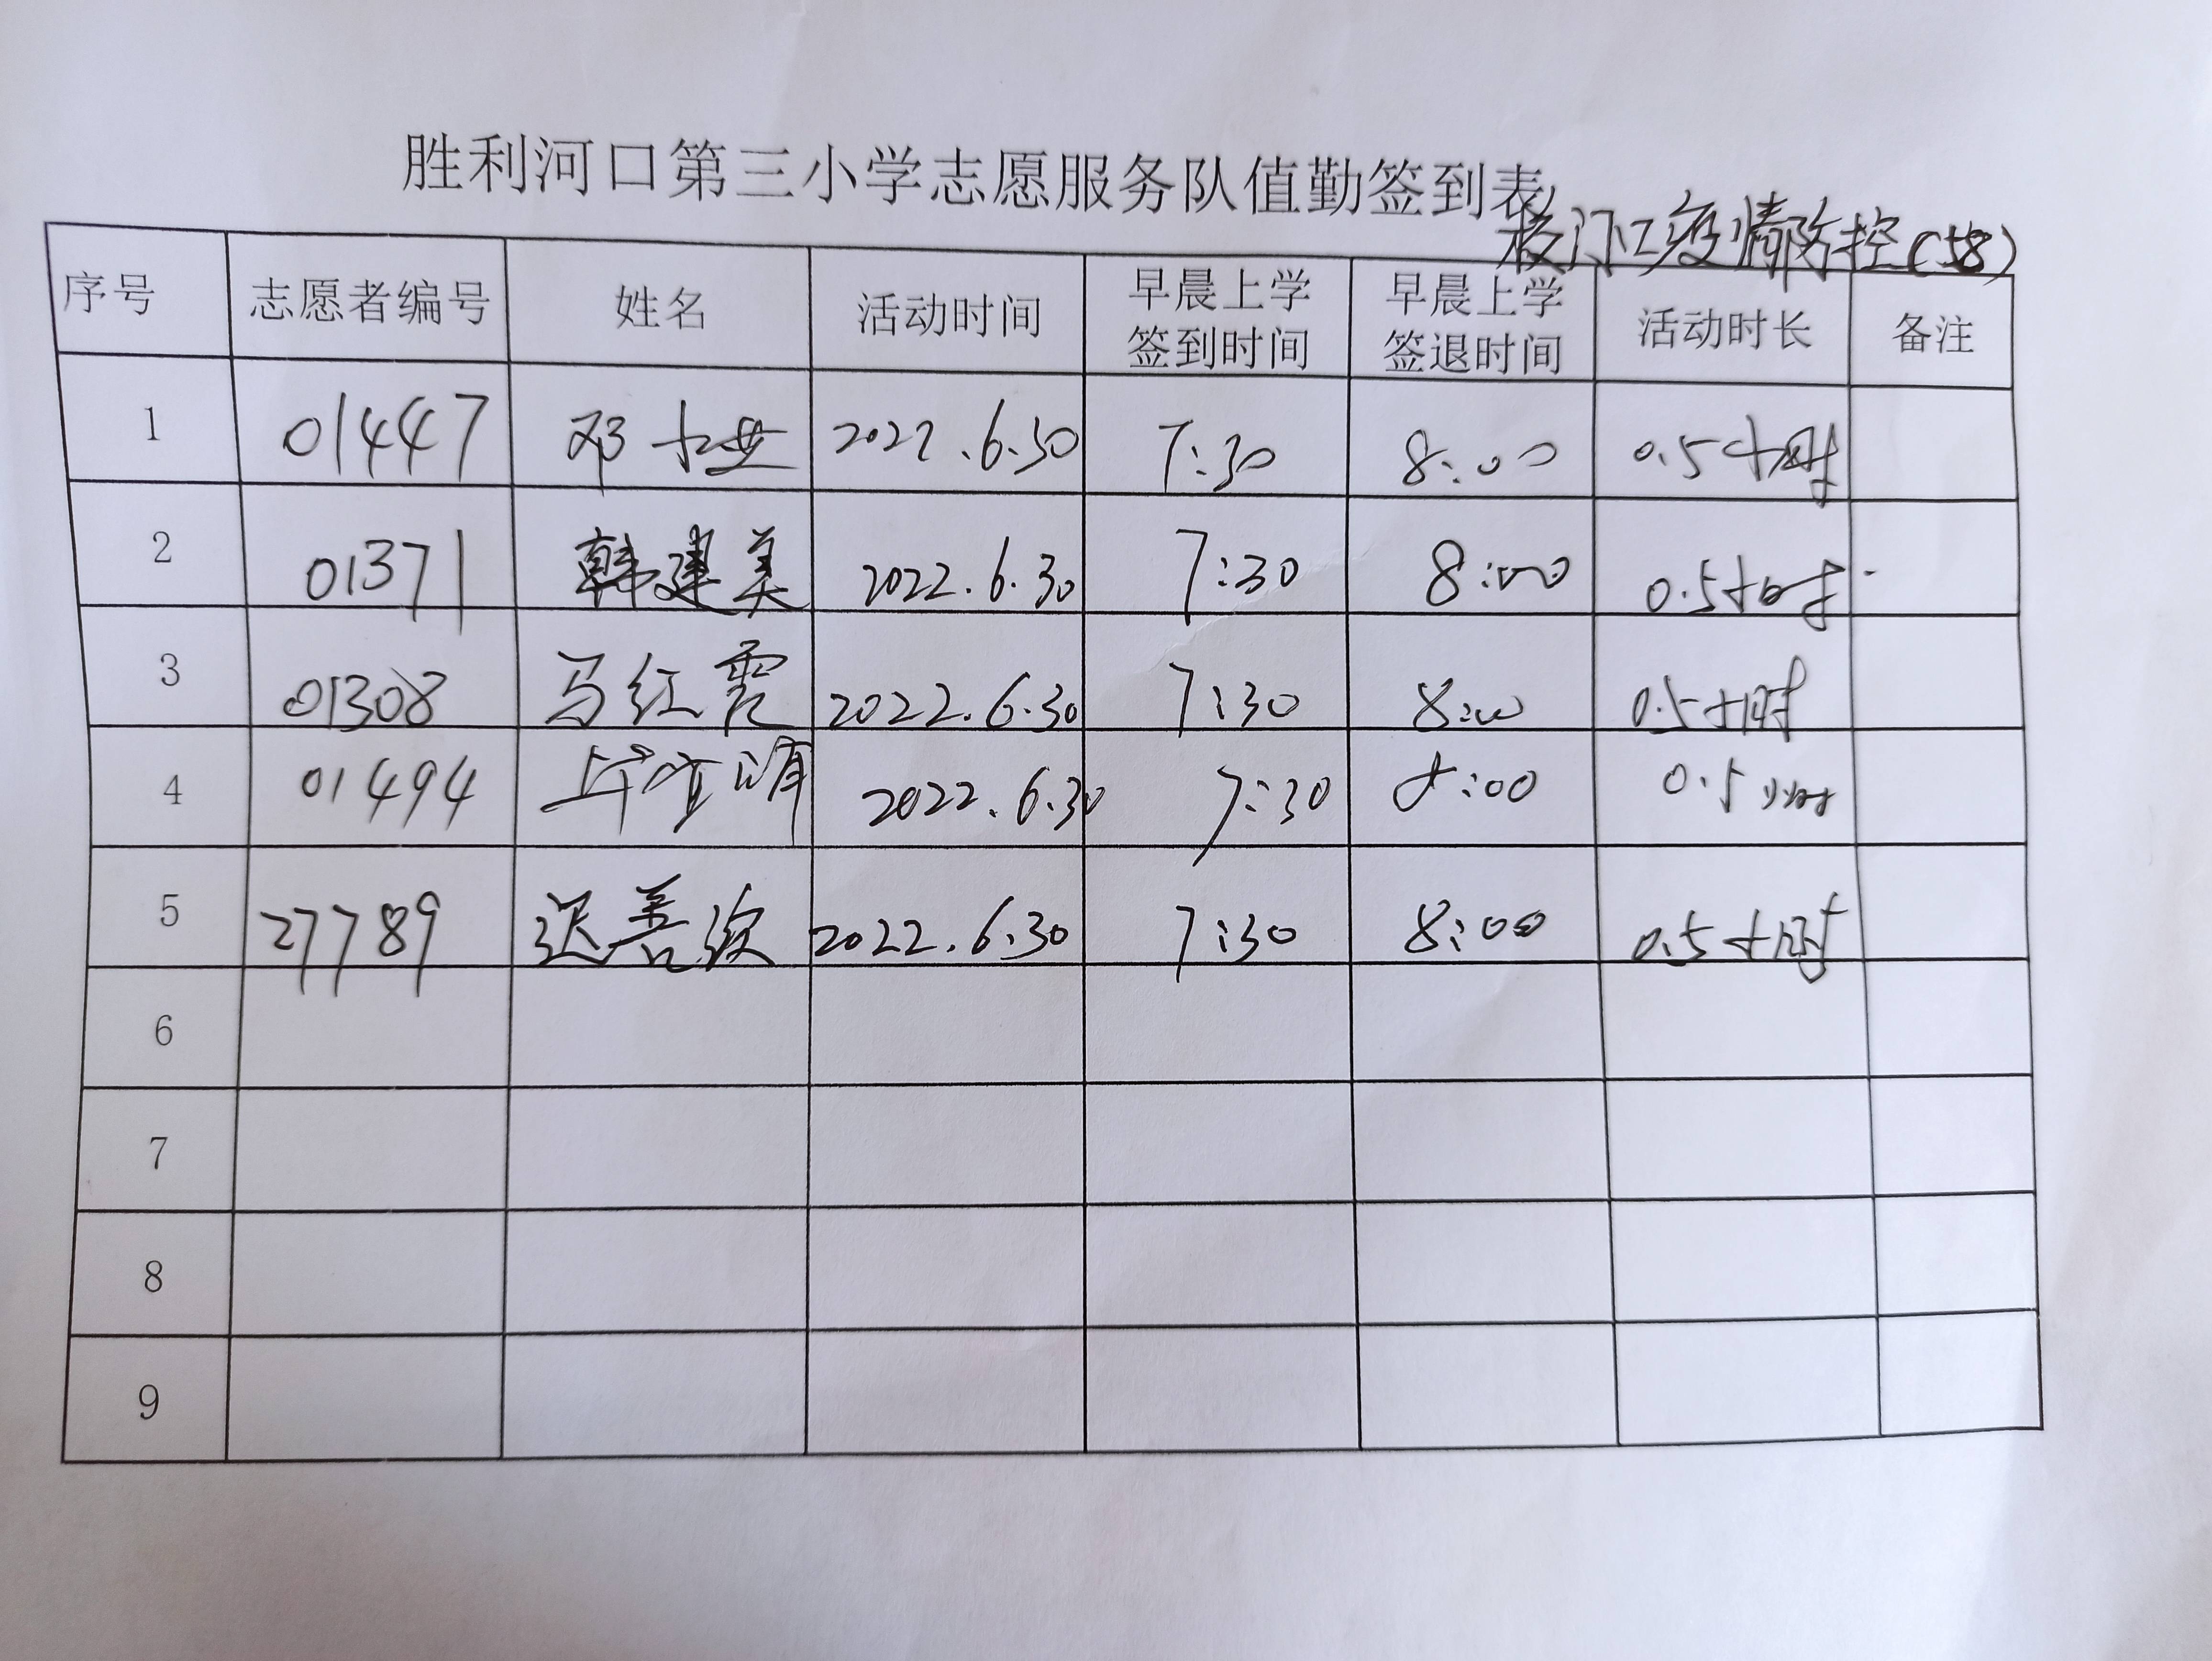 胜利河口第三小学志愿服务队值勤签到表
校门口疫情防控(58)
序号 志愿者编号 姓名 活动时间 早晨上学签到时间 早晨上学签退时间 活动时长 备注
1 01447 邓 2022.6.30 7:30 8:00 0.5小时
2 01371 韩建美 2022.6.30 7:30 8:00 0.5小时
3 01308 马红霞 2022.6.30 7:30 8:00 0.5小时
4 01494 2022.6.30 7:30 8:00 0.5小时
5 27789 迟善波 2022.6.30 7:30 8:00 0.5小时
6
7
8
9